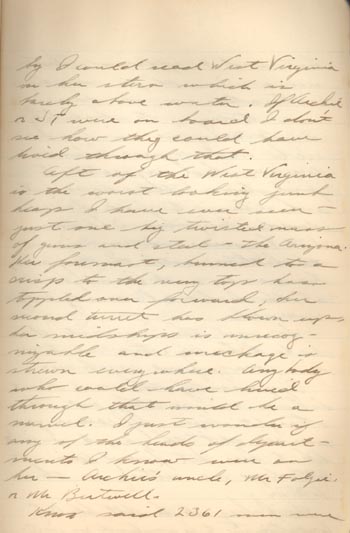 by I could read West Virginia
on her stern which is
barely above water. If Archie
or St were on board I don't
see how they could have
lived through that.
Aft of the West Virginia
is the worst looking junk
heap I have ever seen -
just one big twisted mass
of guns and steel - the Arizona.
Her foremast, burned to a
crisp to the very top has
toppled over forward, her
second turret has blown up,
her midships is unrecog-
nizable and wreckage is
strewn everywhere. Anybody
who could have lived
through that would be a
marvel. I just wonder if
any of the heads of depart-
ments I know were on
her - Archie's uncle, Mr
or Mr
Knox said 2361 men were